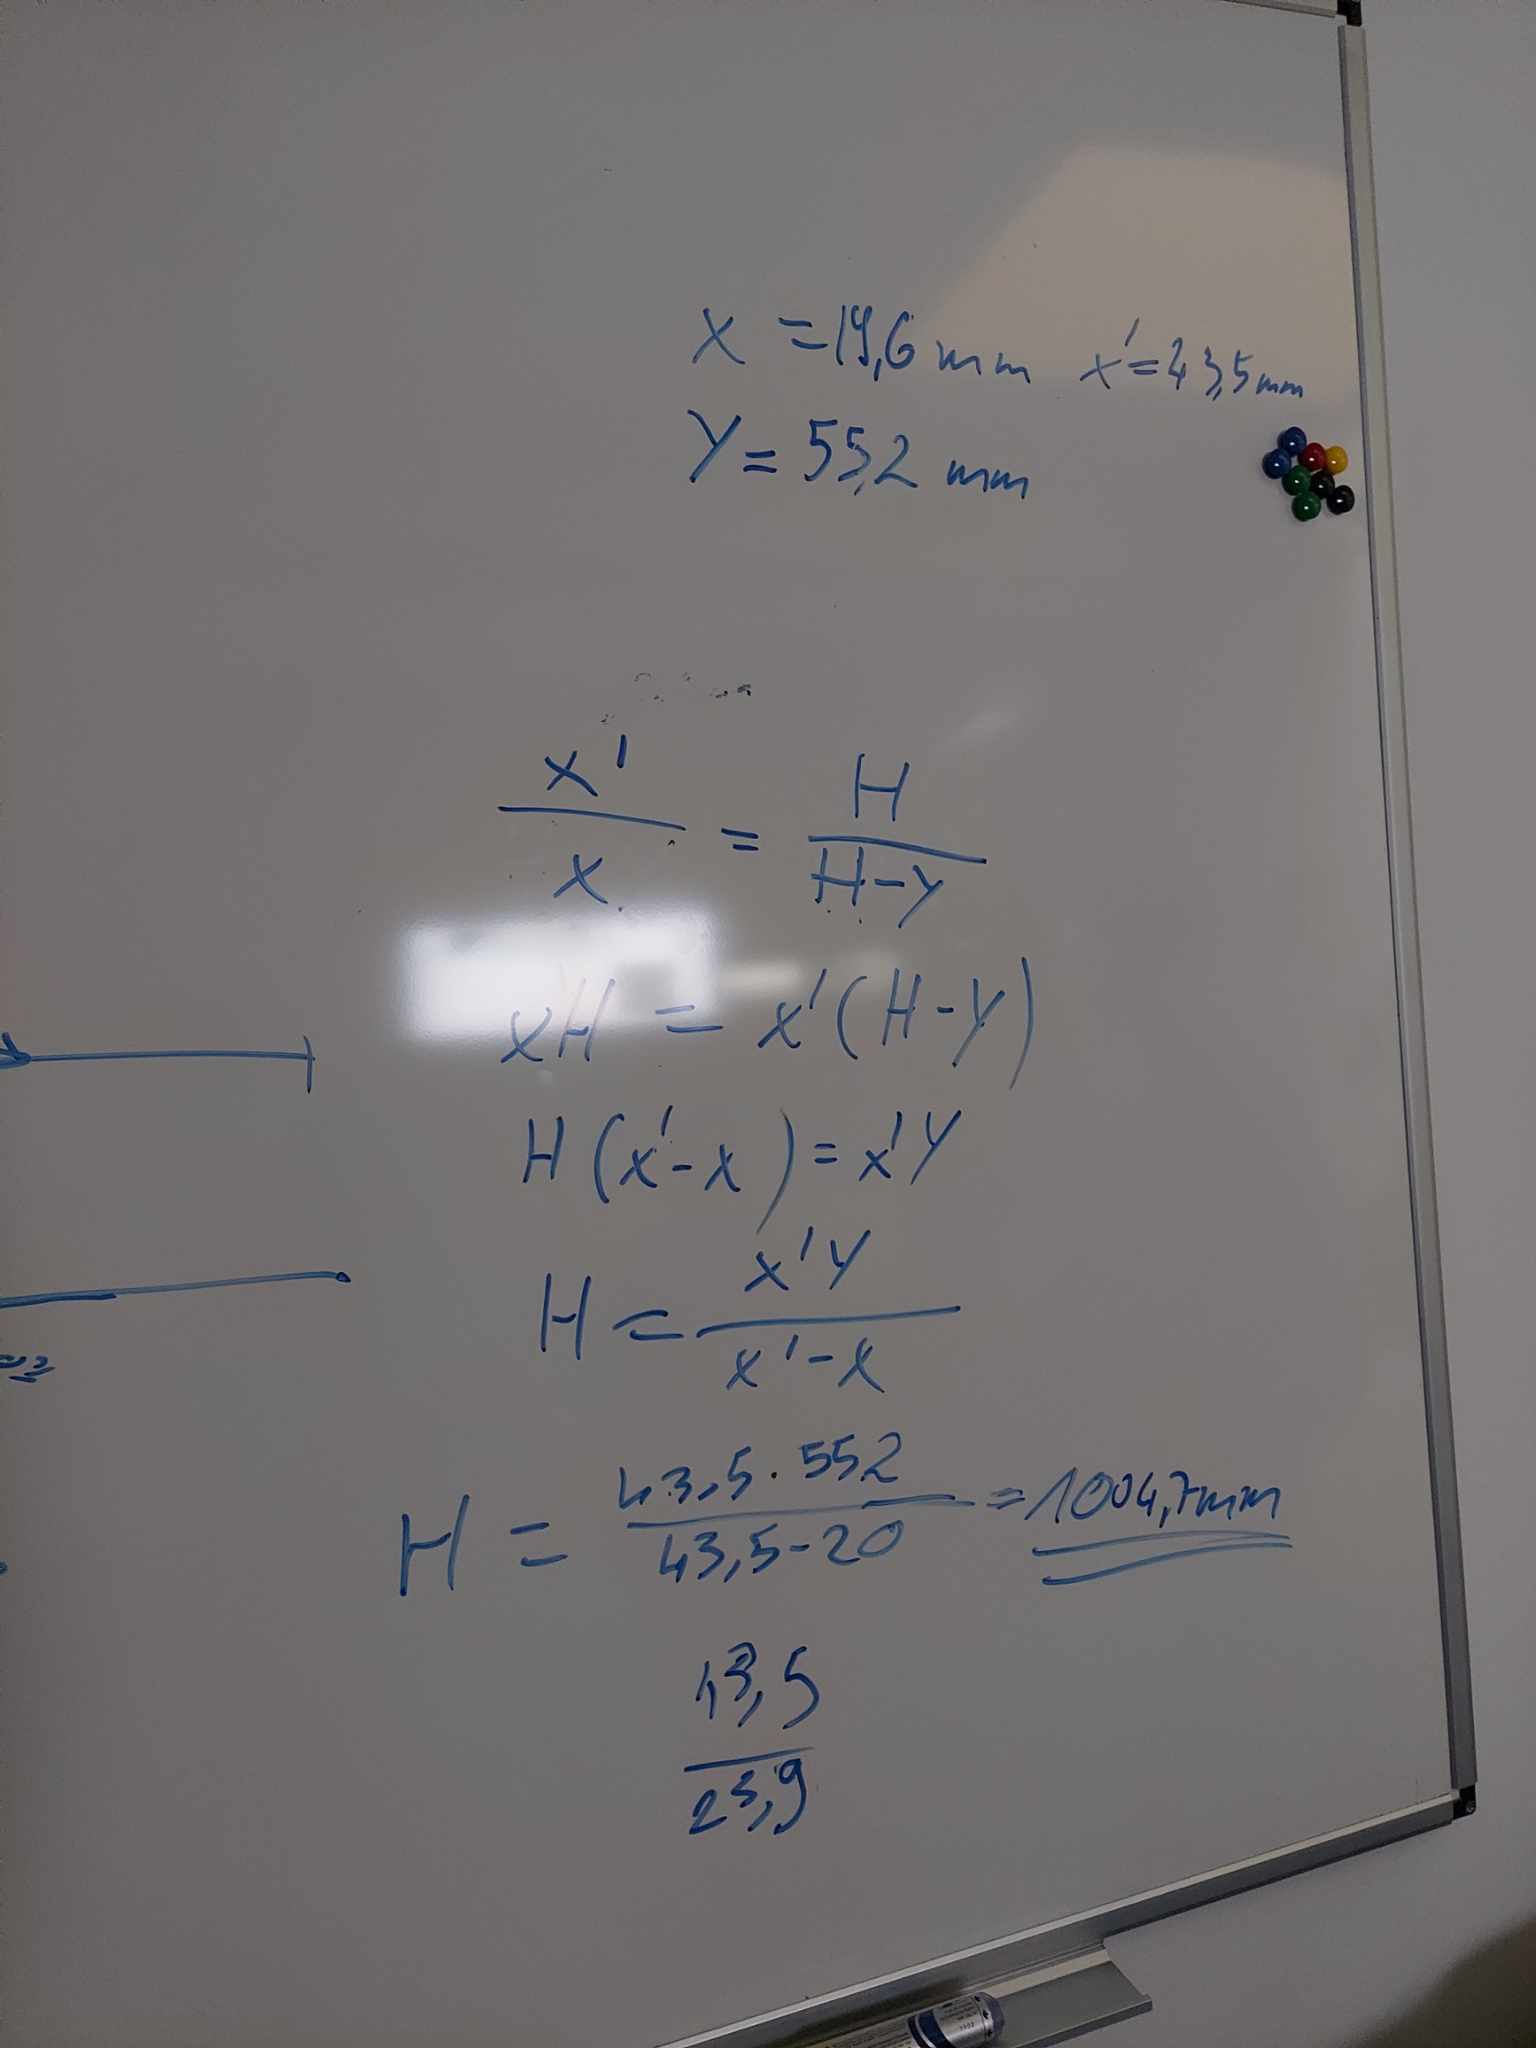 x = 19,6 mm x' = 43,5 mm
y = 55,2 mm
x' / x = H / H-y
xH = x'(H-y)
H(x'-x) = x'y
H = x'y / x'-x
H = 43,5 · 552 / 43,5-20 = 1004,7mm
43,5
23,9